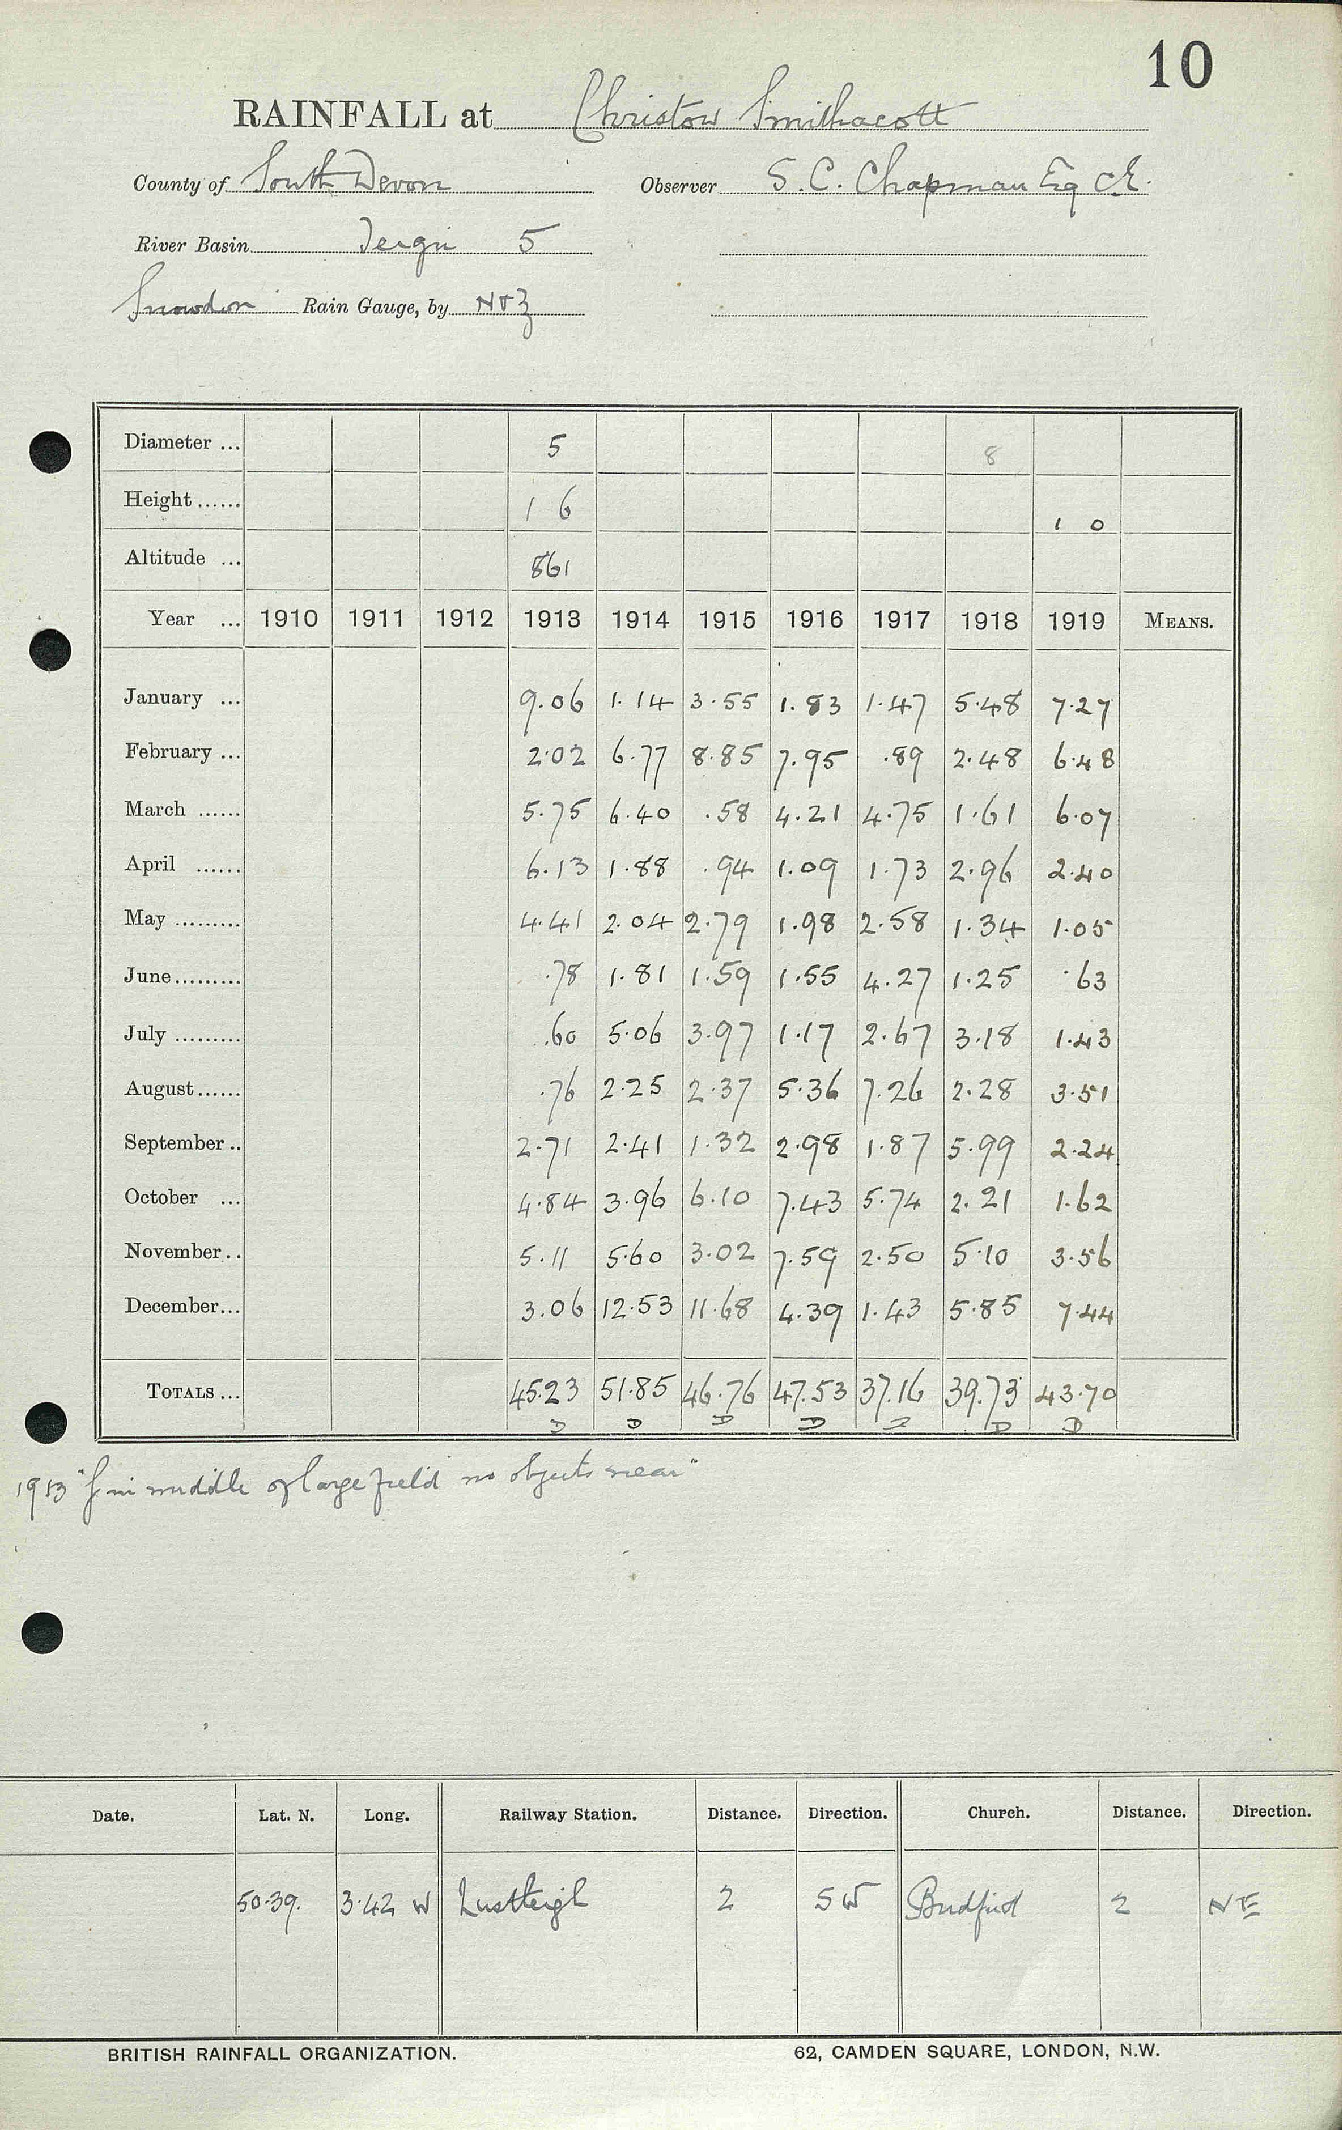 10
RAINFALL at Christow Smithacott
County of South Devon Observer S. C. Chapman Esq CE.
River Basin Teign 5
Snowdon Rain Gauge, by N+Z
Diameter ... 5 8
Height ...... 1 6 1 0
Altitude ... 861
Year ... 1910 1911 1912 1913 1914 1915 1916 1917 1918 1919 MEANS.
January ... 9.06 1.14 3.55 1.83 1.47 5.48 7.27
February ... 2.02 6.77 8.85 7.95 .89 2.48 6.48
March ...... 5.75 6.40 .58 4.21 4.75 1.61 6.07
April ...... 6.13 1.88 .94 1.09 1.73 2.96 2.40
May ......... 4.41 2.04 2.79 1.98 2.58 1.34 1.05
June ......... .78 1.81 1.59 1.55 4.27 1.25 .63
July ......... .60 5.06 3.97 1.17 2.67 3.18 1.43
August ...... .76 2.25 2.37 5.36 7.26 2.28 3.51
September .. 2.71 2.41 1.32 2.98 1.87 5.99 2.24
October ... 4.84 3.96 6.10 7.43 5.74 2.21 1.62
November .. 5.11 5.60 3.02 7.59 2.50 5.10 3.56
December ... 3.06 12.53 11.68 4.39 1.43 5.85 7.44
TOTALS ... 45.23 51.85 46.76 47.53 37.16 39.73 43.70
D D D D D D D
1913 "G in middle of large field no objects near"
Date. Lat. N. Long. Railway Station. Distance. Direction. Church. Distance. Direction.
50.39. 3.42 W Lustleigh 2 SW Bridford 2 NE
BRITISH RAINFALL ORGANIZATION. 62, CAMDEN SQUARE, LONDON, N.W.